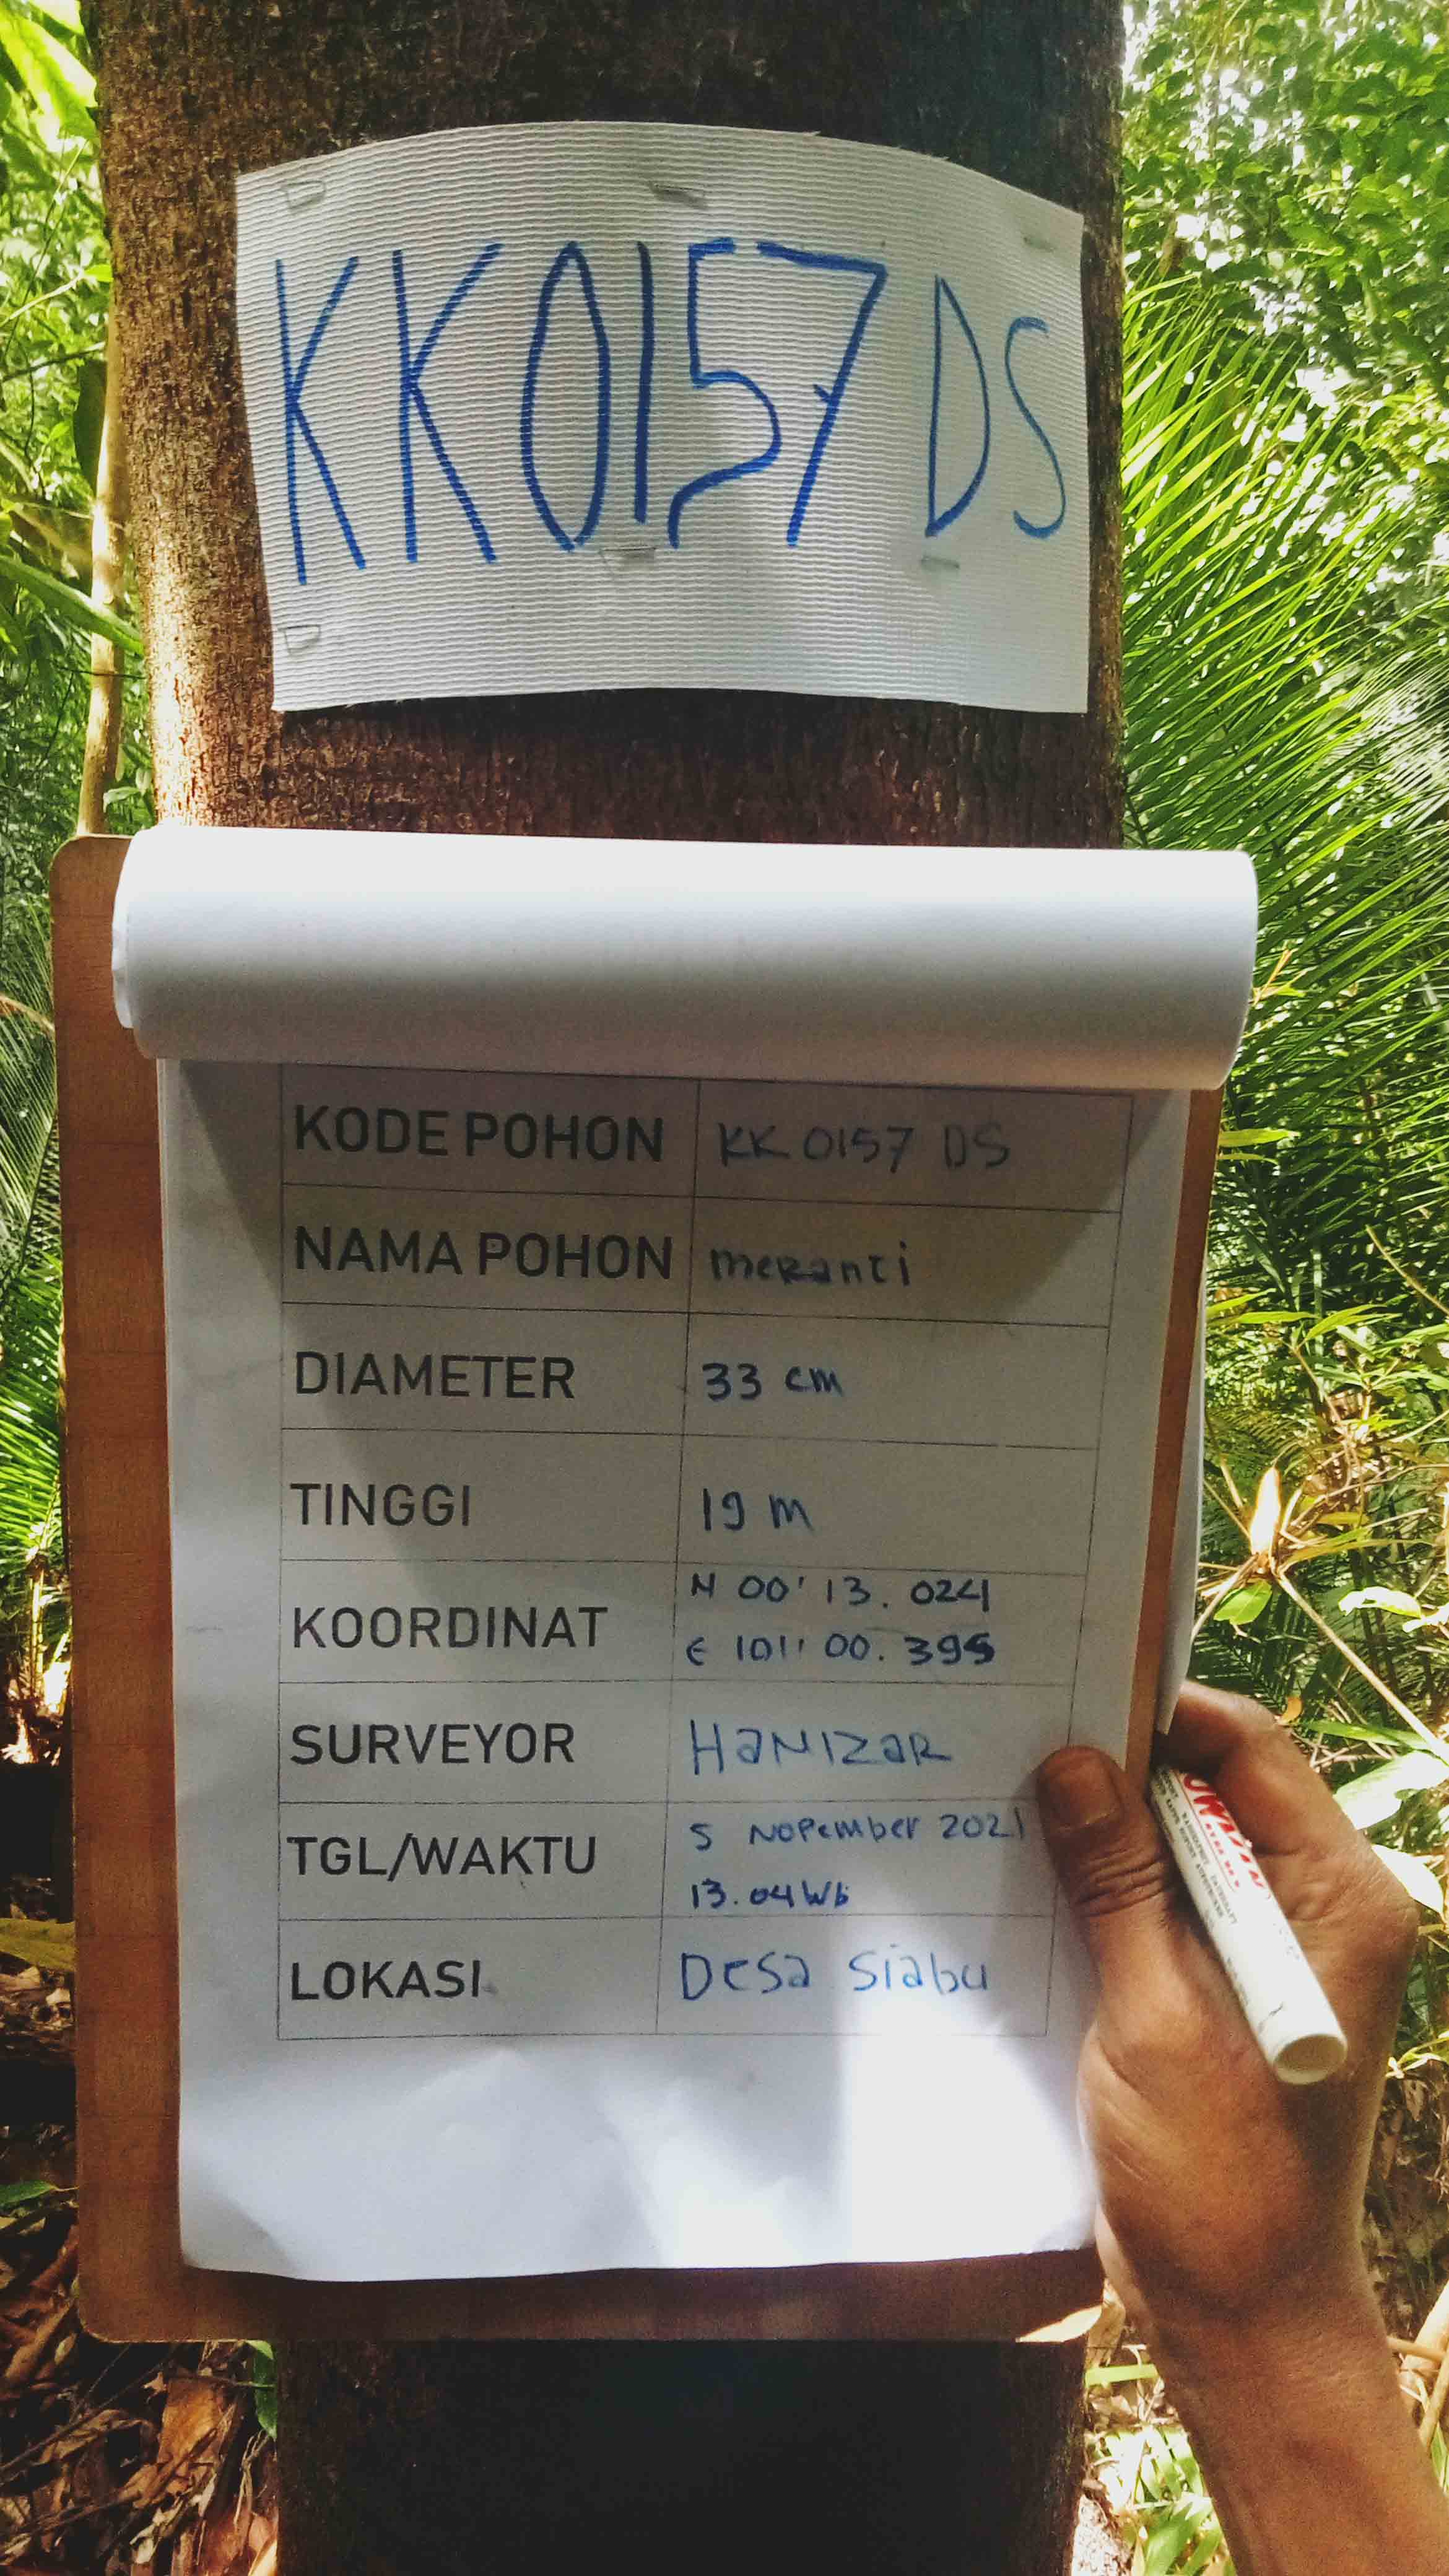 KK0157 DS
KODE POHON KK 0157 DS
NAMA POHON meRanti
DIAMETER 33 cm
TINGGI 19 m
KOORDINAT N 00' 13. 024
E 101' 00. 395
SURVEYOR HaNIZaR
TGL/WAKTU 5 NoPember 2021
13.04 Wb
LOKASI Desa Siabu